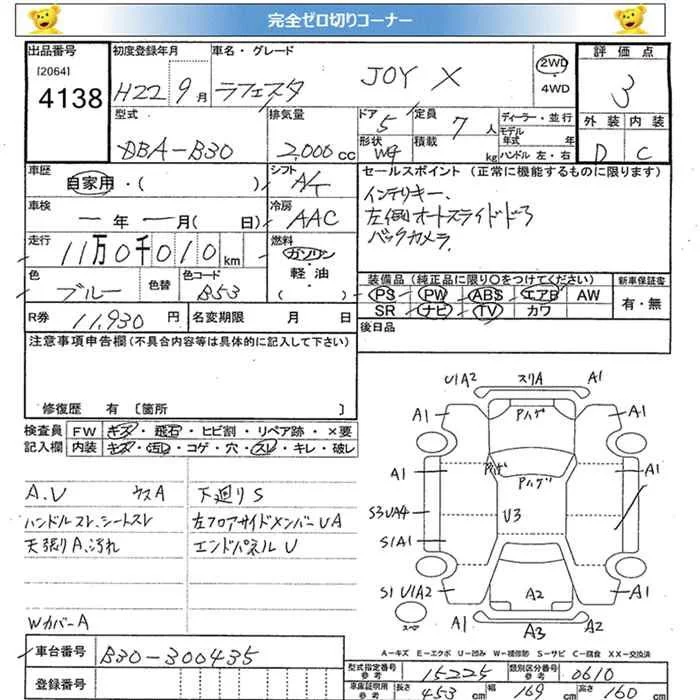 完全ゼロ切りコーナー
出品番号 初度登録年月 車名・グレード 評価点
[2064] 4138 H22 9月 ラフェスタ JOY X 2WD・4WD 3
型式 排気量 ドア 5 定員 7人 ディーラー・並行
DBA-B30 2,000cc 形状 WG 積載 kg モデル年式 年 ハンドル 左・右
外装 内装
D C
車歴 自家用・( ) シフト A/T セールスポイント (正常に機能するものに限ります)
車検 ー年ー月( 日) 冷房 AAC インテリキー、
左側オートスライドドア
バックカメラ
走行 11万0千010km 燃料 ガソリン・軽油 ( )
色 ブルー 色替 色コード B53
装備品 (純正品に限り〇をつけてください) 新車保証書
PS PW ABS エアB AW 有・無
SR ナビ TV カワ
R券 11,930円 名変期限 月 日 後日品
注意事項申告欄(不具合内容等は具体的に記入して下さい)
修復歴 有 〔箇所 〕
検査員記入欄 FW キズ・飛石・ヒビ割・リペア跡・×要
内装 キズ・汚れ・コゲ・穴・スレ・キレ・破レ
A.V ウスA 下廻りS
ハンドルスレ、シートスレ 左フロアサイドメンバーUA
天張りA、汚れ エンドパネルU
WカバーA
U1A2 スリA A1
A1 Pハゲ A1
A1 Pハゲ Pハゲ A1
S3UA4 U3
S1A1
S1 U1A2 A2 A1
スペア A1 A3 A2
A-キズ E-エクボ U-凹み W-補修跡 S-サビ C-腐食 XX-交換済
車台番号 B30-300435
登録番号
型式指定番号 参考 15225 類別区分番号 参考 0610
車庫証明用 参考 長さ 453cm 幅 169cm 高さ 160cm